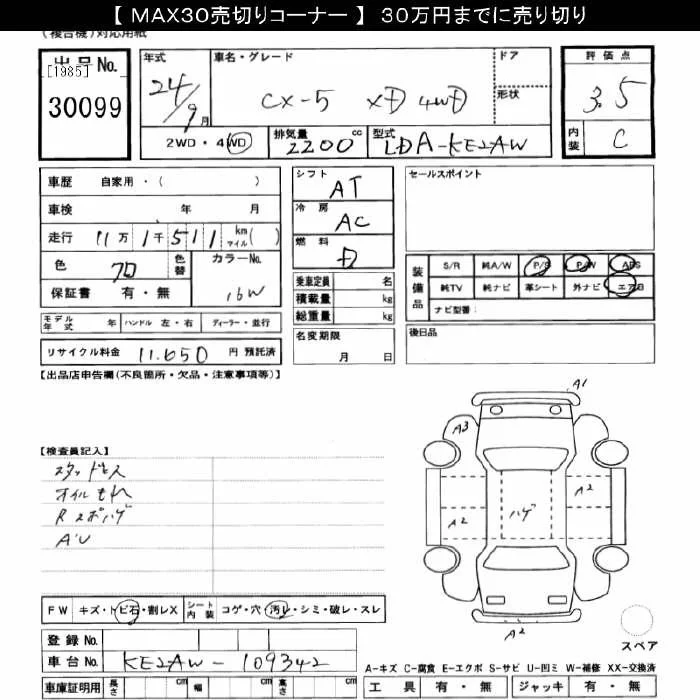 【 MAX30売切りコーナー 】 30万円までに売り切り
(複合機)対応用紙
出品No.
[1985]
30099
年式
24/9月
車名・グレード
CX-5 XD 4WD
ドア
形状
2WD・4WD
排気量
2200cc
型式
LDA-KE2AW
評価点
3.5
内装
C
車歴 自家用・( )
車検 年 月
走行 11万1千511 km マイル( )
色
色替
カラーNo.
16W
保証書 有・無
モデル年式 年 ハンドル 左・右 ディーラー・並行
リサイクル料金 11.650 円 預託済
シフト
AT
冷房
AC
燃料
D
乗車定員 名
積載量 kg
総重量 kg
名変期限
月 日
セールスポイント
装備品
S/R 純A/W P/S P/W ABS
純TV 純ナビ 革シート 外ナビ エアB
ナビ型番:
後日品
【出品店申告欄(不良箇所・欠品・注意事項等)】
【検査員記入】
オイルもれ
R スポハゲ
A'U
A1
A3
A2
A2
ハゲ
A2
スペア
FW キズ・トビ石・割レX シート内装 コゲ・穴・汚レ・シミ・破レ・スレ
登録No.
車台No. KE2AW-109342
車庫証明用 長さ cm 幅 cm 高さ cm
A-キズ C-腐食 E-エクボ S-サビ U-凹ミ W-補修 XX-交換済
工具 有・無 ジャッキ 有・無